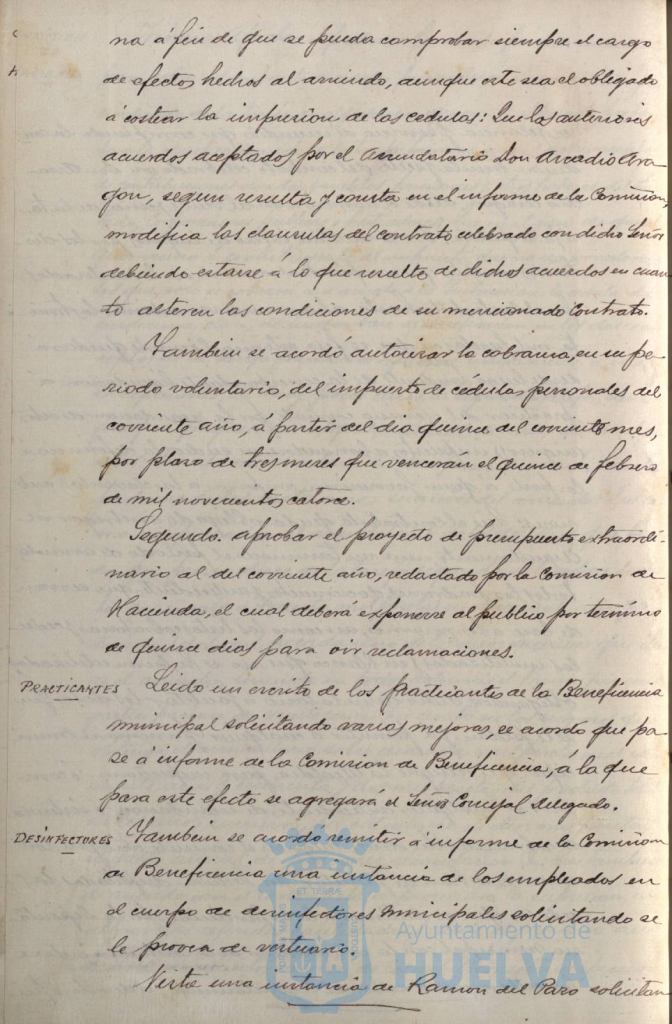 na á fin de que se pueda comprobar siempre el cargo
de efectos hechos al arriendo, aunque este sea el obligado
á costear la impresion de las cedulas: Que los anteriores
acuerdos aceptados por el Arrendatario Don Arcadio Ara-
gon, segun resulta y consta en el informe de la Comision,
modifica las clausulas del contrato celebrado con dicho Señor
debiendo estarse á lo que resulte de dichos acuerdos en cuan-
to alteren las condiciones de su mencionado Contrato.
Tambien se acordó autorizar la cobranza, en su pe-
riodo voluntario, del impuesto de cédulas personales del
corriente año, á partir del dia quince del corriente mes,
por plazo de tres meses que vencerán el quince de febrero
de mil novecientos catorce.
Segundo. aprobar el proyecto de presupuesto extraordi-
nario al del corriente año, redactado por la Comision de
Hacienda, el cual deberá exponerse al publico por término
de quince dias para oir reclamaciones.
PRACTICANTES Leido un escrito de los practicantes de la Beneficencia
municipal solicitando varias mejoras, se acordo que pa-
se á informe de la Comision de Beneficencia, á la que
para este efecto se agregará el Señor Concejal Delegado.
DESINFECTORES Tambien se acordó remitir á informe de la Comision
de Beneficencia una instancia de los empleados en
el cuerpo de desinfectores municipales solicitando se
le provea de vestuario.
Vista una instancia de Ramon del Pazo solicitan
Ayuntamiento de
HUELVA